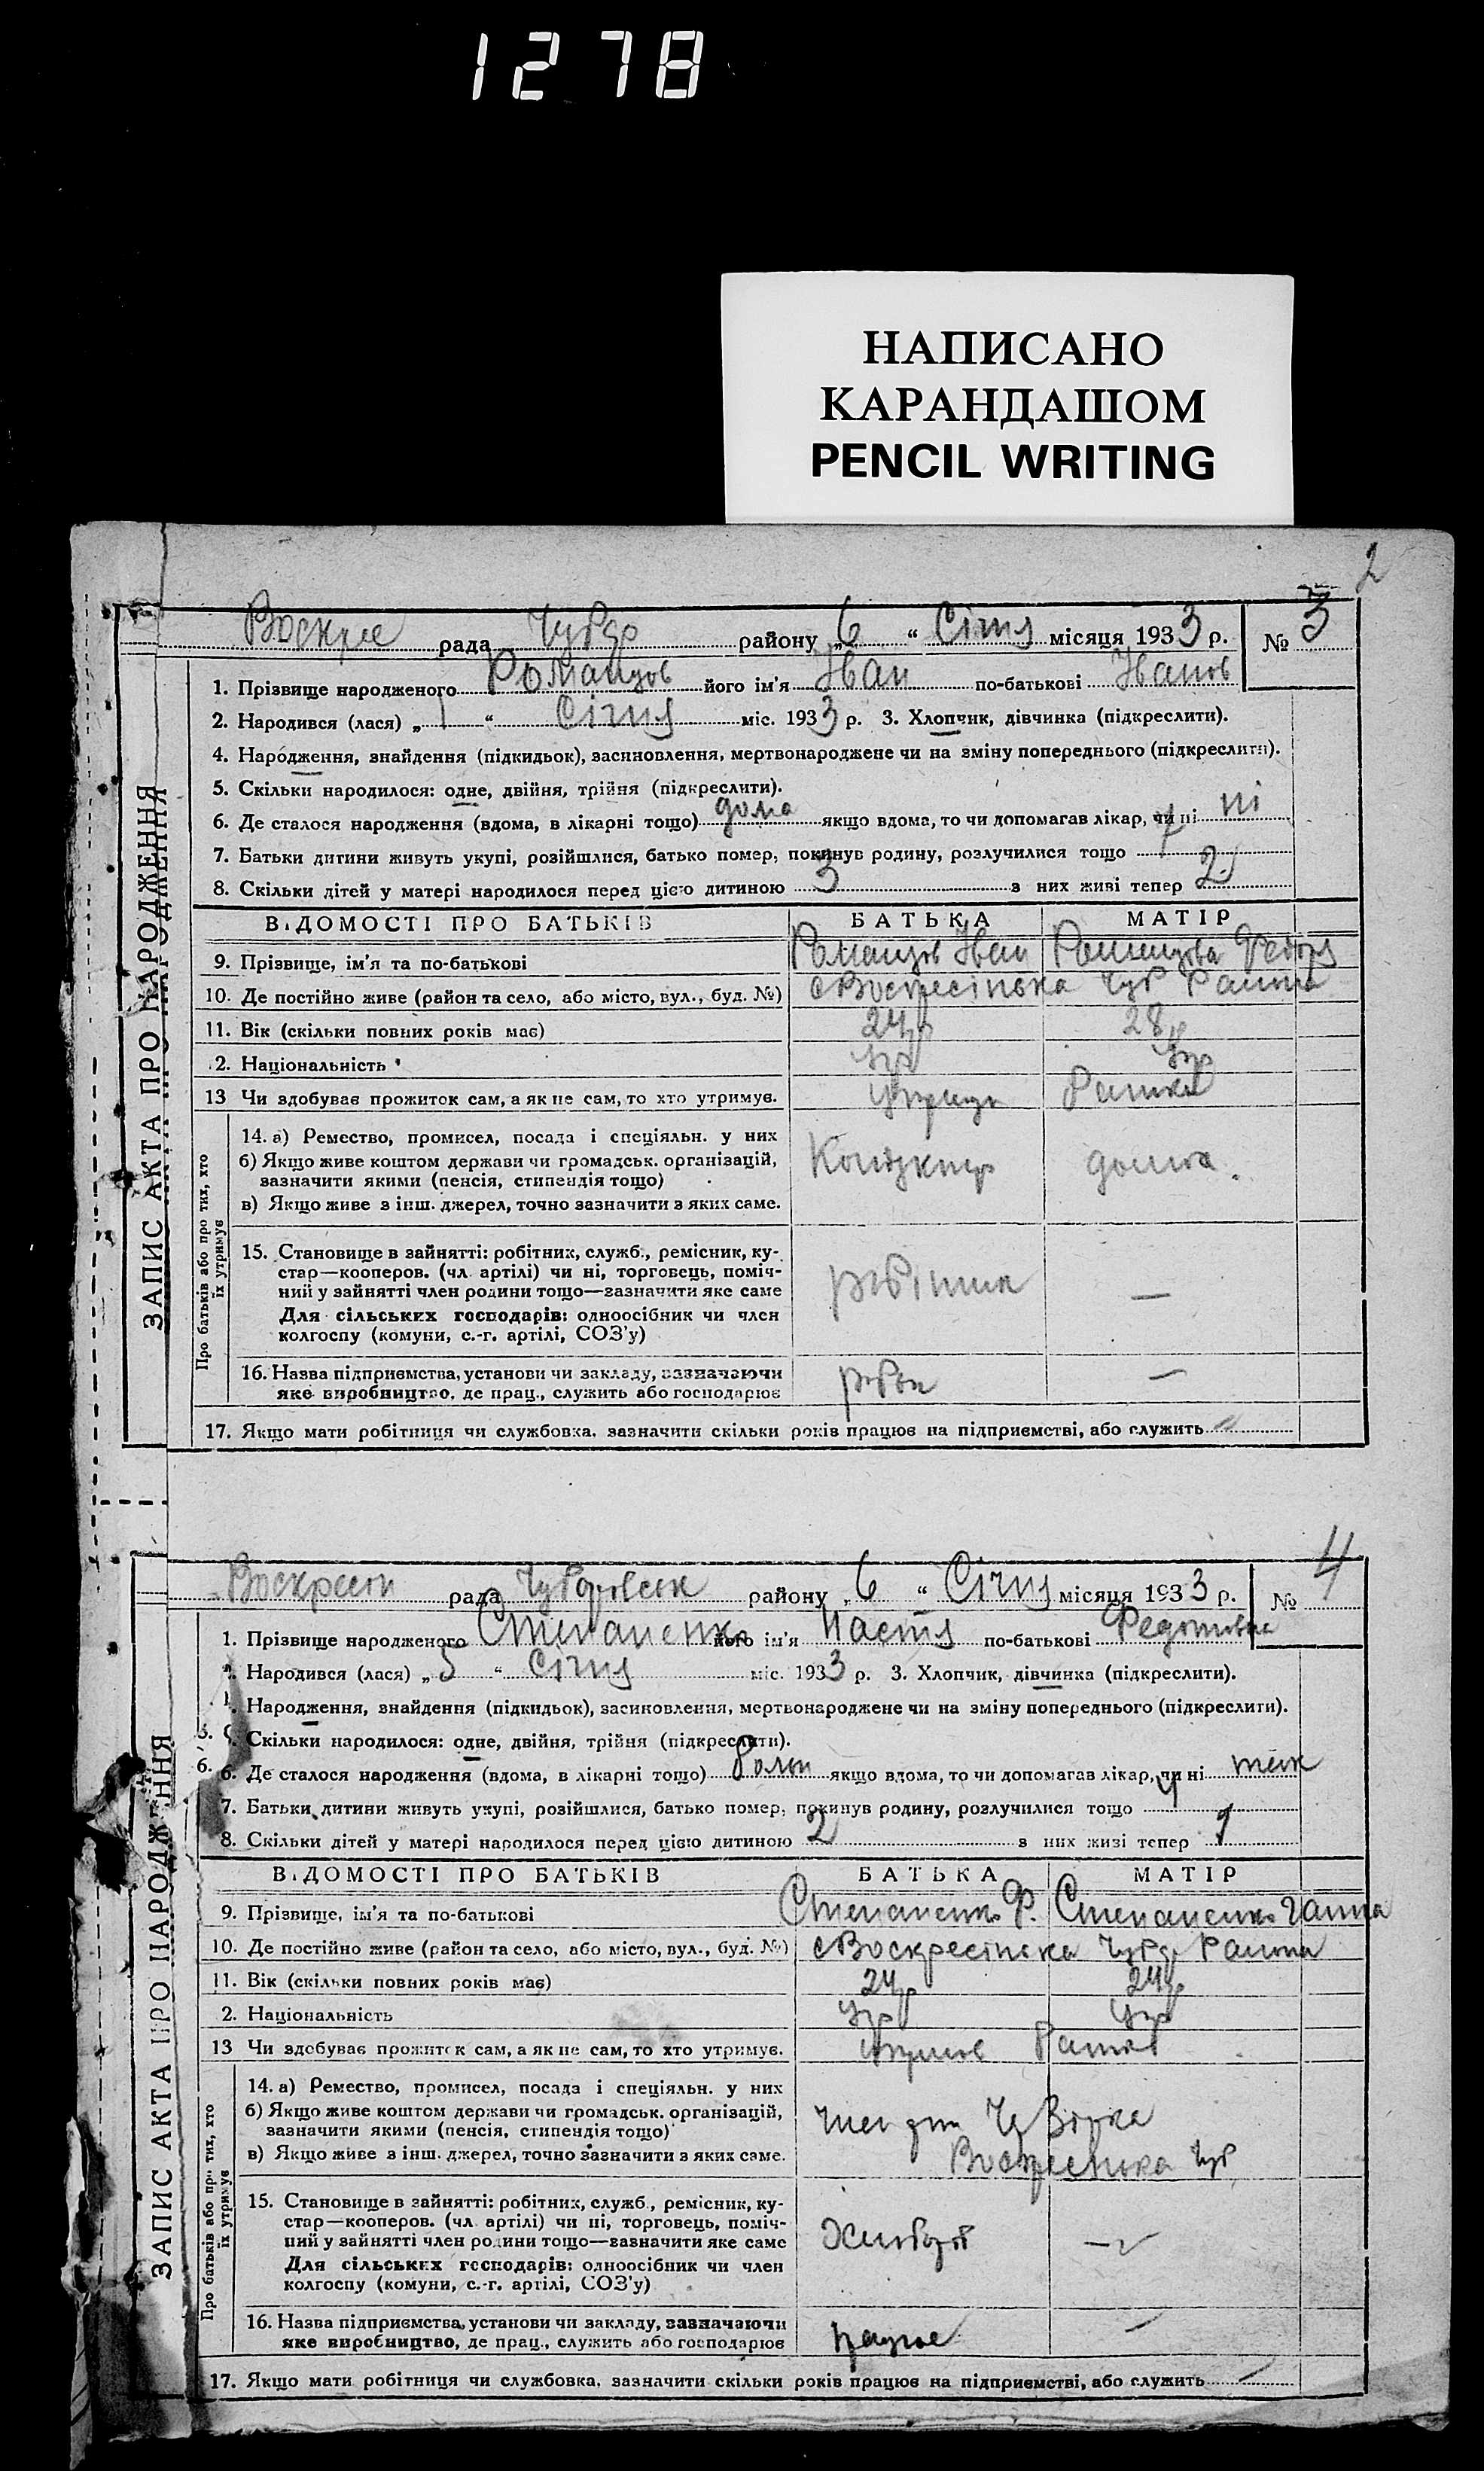 1278
НАПИСАНО
КАРАНДАШОМ
PENCIL WRITING
2
Воскре рада Чубар району „6“ Січня місяця 1933 р. № 3
ЗАПИС АКТА ПРО НАРОДЖЕННЯ
1. Прізвище народженого Романцов його ім'я Іван по-батькові Іванов
2. Народився (лася) „1“ Січня міс. 1933 р. 3. Хлопчик, дівчинка (підкреслити).
4. Народження, знайдення (підкидьок), засиновлення, мертвонароджене чи на зміну попереднього (підкреслити).
5. Скільки народилося: одне, двійня, трійня (підкреслити).
6. Де сталося народження (вдома, в лікарні тощо) дома якщо вдома, то чи допомагав лікар, чи ні ні
7. Батьки дитини живуть укупі, розійшлися, батько помер, покинув родину, розлучилися тощо
8. Скільки дітей у матері народилося перед цією дитиною 3 з них живі тепер 2
ВІДОМОСТІ ПРО БАТЬКІВ БАТЬКА МАТІР
9. Прізвище, ім'я та по-батькові Романцов Іван
10. Де постійно живе (район та село, або місто, вул., буд. №) с Воскресінька Чуб
11. Вік (скільки повних років має) 24р 28р
2. Національність Укр Укр
13 Чи здобуває прожиток сам, а як не сам, то хто утримує.
Про батьків або про тих, хто їх утримує
14. а) Ремество, промисел, посада і спеціяльн. у них
б) Якщо живе коштом держави чи громадськ. організацій,
зазначити якими (пенсія, стипендія тощо)
в) Якщо живе з інш. джерел, точно зазначити з яких саме.
Кондуктор
15. Становище в зайнятті: робітник, служб., ремісник, ку-
стар—кооперов. (чл. артілі) чи ні, торговець, поміч-
ний у зайнятті член родини тощо—зазначити яке саме
Для сільських господарів: одноосібник чи член
колгоспу (комуни, с.-г. артілі, СОЗ'у)
—
16. Назва підприємства, установи чи закладу, зазначаючи —
яке виробництво, де прац., служить або господарює
17. Якщо мати робітниця чи службовка, зазначити скільки років працює на підприємстві, або служить
Воскресен рада Чубаровськ району „6“ Січня місяця 1933 р. № 4
ЗАПИС АКТА ПРО НАРОДЖЕННЯ
1. Прізвище народженого Степаненко його ім'я Настя по-батькові Федотовна
2. Народився (лася) „5“ Січня міс. 1933 р. 3. Хлопчик, дівчинка (підкреслити).
4. Народження, знайдення (підкидьок), засиновлення, мертвонароджене чи на зміну попереднього (підкреслити).
5. Скільки народилося: одне, двійня, трійня (підкреслити).
6. Де сталося народження (вдома, в лікарні тощо) якщо вдома, то чи допомагав лікар, чи ні
7. Батьки дитини живуть укупі, розійшлися, батько помер, покинув родину, розлучилися тощо
8. Скільки дітей у матері народилося перед цією дитиною 2 з них живі тепер 1
ВІДОМОСТІ ПРО БАТЬКІВ БАТЬКА МАТІР
9. Прізвище, ім'я та по-батькові Степаненко Ф. Степаненко Ганна
10. Де постійно живе (район та село, або місто, вул., буд. №) с Воскресінька Чубар
11. Вік (скільки повних років має) 24р 24р
2. Національність Укр Укр
13 Чи здобуває прожиток сам, а як не сам, то хто утримує.
Про батьків або про тих, хто їх утримує
14. а) Ремество, промисел, посада і спеціяльн. у них
б) Якщо живе коштом держави чи громадськ. організацій,
зазначити якими (пенсія, стипендія тощо)
в) Якщо живе з інш. джерел, точно зазначити з яких саме.
15. Становище в зайнятті: робітник, служб., ремісник, ку-
стар—кооперов. (чл. артілі) чи ні, торговець, поміч-
ний у зайнятті член родини тощо—зазначити яке саме
Для сільських господарів: одноосібник чи член
колгоспу (комуни, с.-г. артілі, СОЗ'у)
16. Назва підприємства, установи чи закладу, зазначаючи
яке виробництво, де прац., служить або господарює
працює
17. Якщо мати робітниця чи службовка, зазначити скільки років працює на підприємстві, або служить —